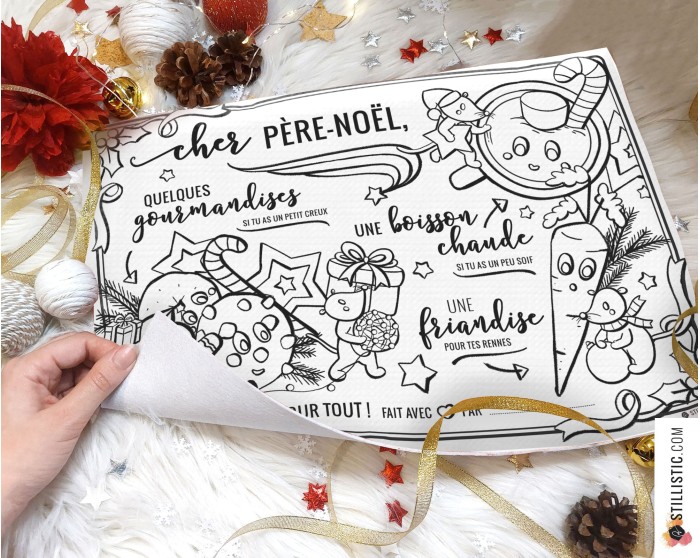 cher PÈRE-NOËL,
QUELQUES
gourmandises
SI TU AS UN PETIT CREUX
UNE boisson
chaude
SI TU AS UN PEU SOIF
UNE
friandise
POUR TES RENNES
TOUT ! FAIT AVEC PAR
STILLISTIC.COM